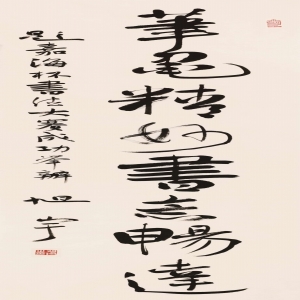 筆墨精妙書志暢達
題嘉海杯書法大賽成功举辦
旭宇